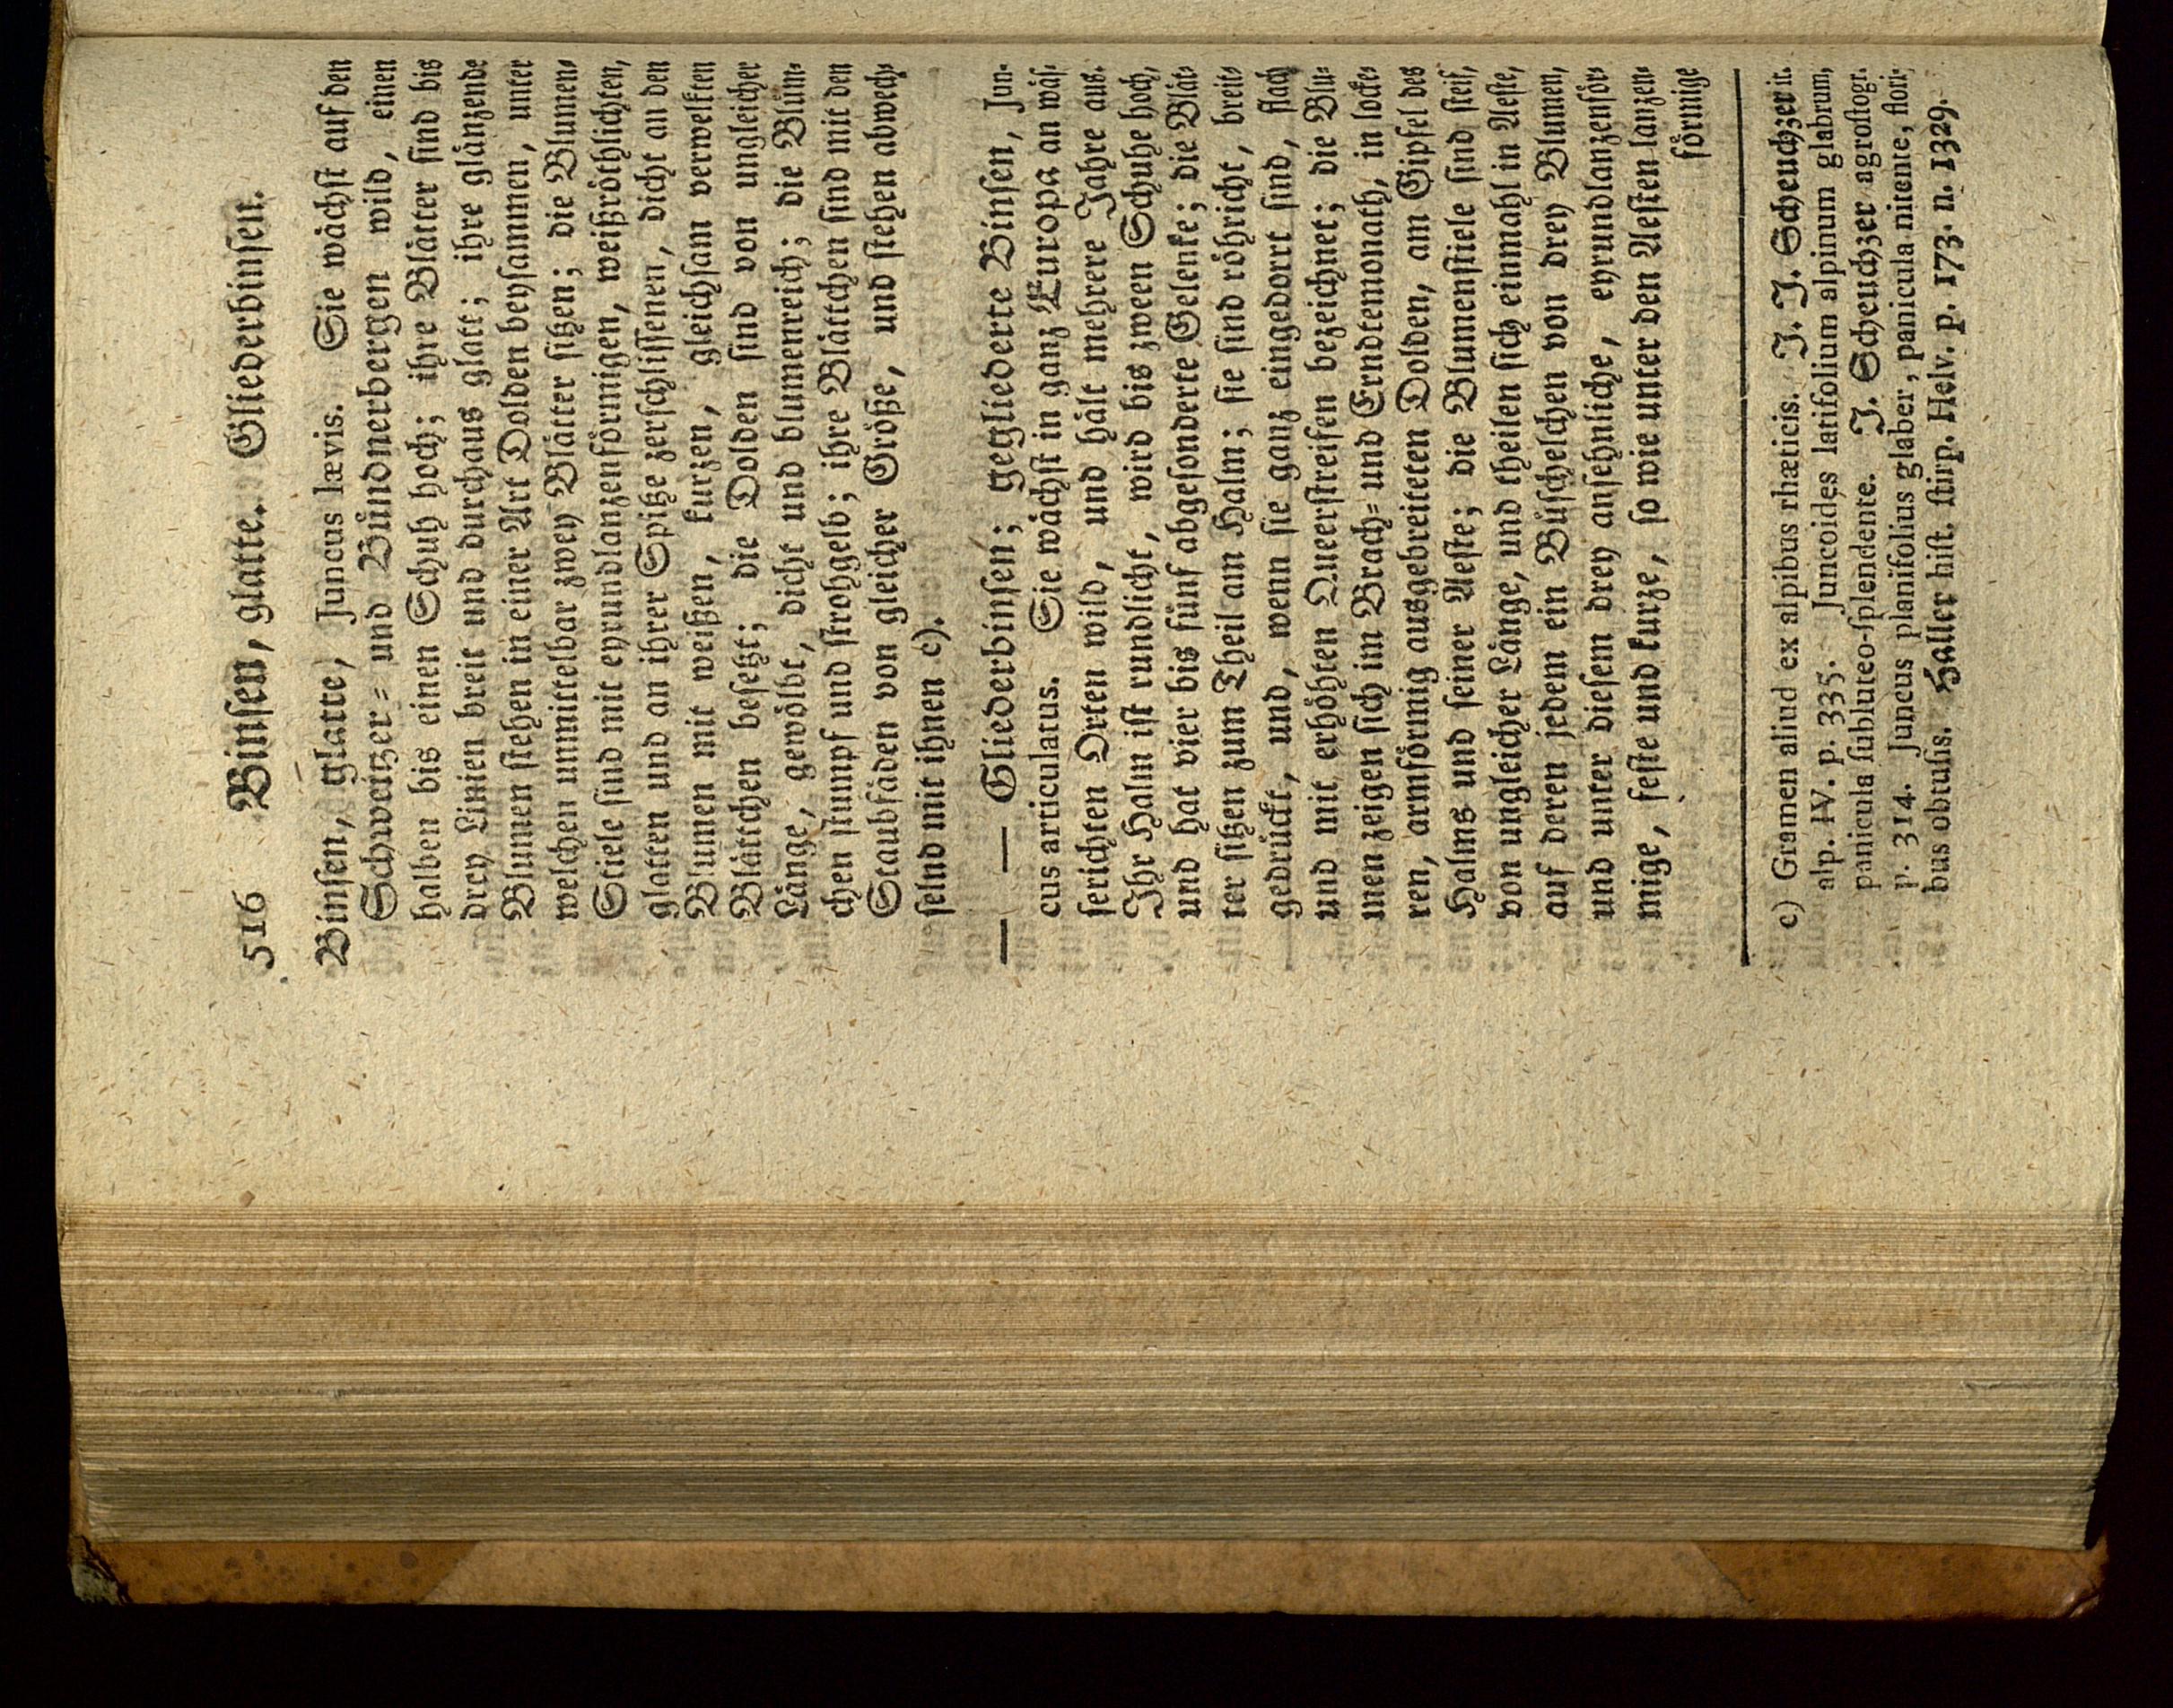 516 Binsen, glatte. Gliederbinsen.
Binsen, glatte, Juncus lævis. Sie wåchst auf den
Schweitzer- und Bůndnerbergen wild, einen
halben bis einen Schuh hoch; ihre Blåtter sind bis
drey Linien breit und durchaus glatt; ihre glånzende
Blumen stehen in einer Art Dolden beysammen, unter
welchen unmittelbar zwey Blåtter sitzen; die Blumen-
Stiele sind mit eyrundlanzenfôrmigen, weißrôthlichten,
glatten und an ihrer Spitze zerschlissenen, dicht an den
Blumen mit weißen, kurzen, gleichsam verwelkten
Blåttchen besetzt; die Dolden sind von ungleicher
Långe, gewôlbt, dicht und blumenreich; die Blům-
chen stumpf und strohgelb; ihre Blåttchen sind mit den
Staubfåden von gleicher Grôße, und stehen abwech-
selnd mit ihnen c).
— — Gliederbinsen; gegliederte Binsen, Jun-
cus articulatus. Sie wåchst in ganz Europa an wås-
serichten Orten wild, und hålt mehrere Jahre aus.
Ihr Halm ist rundlicht, wird bis zween Schuhe hoch,
und hat vier bis fůnf abgesonderte Gelenke; die Blåt-
ter sitzen zum Theil am Halm; sie sind rôhricht, breit-
gedrůckt, und, wenn sie ganz eingedorrt sind, flach
und mit erhôhten Queerstreifen bezeichnet; die Blu-
men zeigen sich im Brach- und Erndtemonath, in locke-
ren, armfôrmig ausgebreiteten Dolden, am Gipfel des
Halms und seiner Aeste; die Blumenstiele sind steif,
von ungleicher Långe, und theilen sich einmahl in Aeste,
auf deren jedem ein Bůschelchen von drey Blumen,
und unter diesem drey ansehnliche, eyrundlanzenfôr-
mige, feste und kurze, so wie unter den Aesten lanzen-
fôrmige
c) Gramen aliud ex alpibus rhæticis. J. J. Scheuchzer it.
alp. IV. p. 335. Juncoides latifolium alpinum glabrum,
panicula subluteo-splendente. J. Scheuchzer agrostogr.
p. 314. Juncus planifolius glaber, panicula nitente, flori-
bus obtusis. Haller hist. stirp. Helv. p. 173. n. 1329.